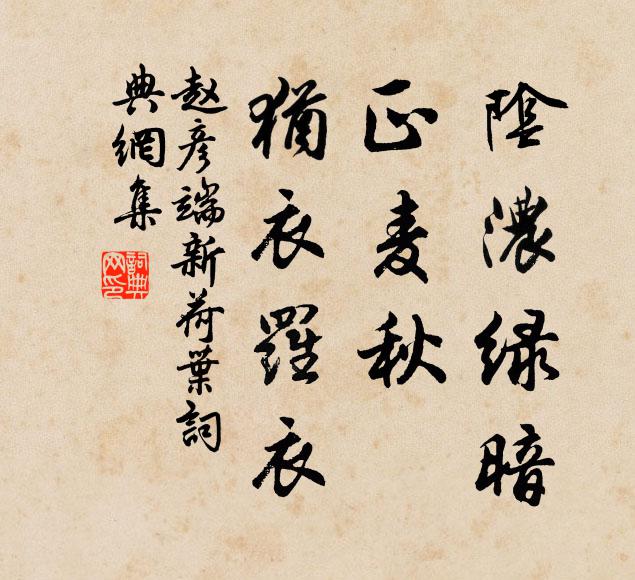 陰濃绿暗
正麦秋
猶衣羅衣
赵彦端新荷葉詞
典網集
詞典网印